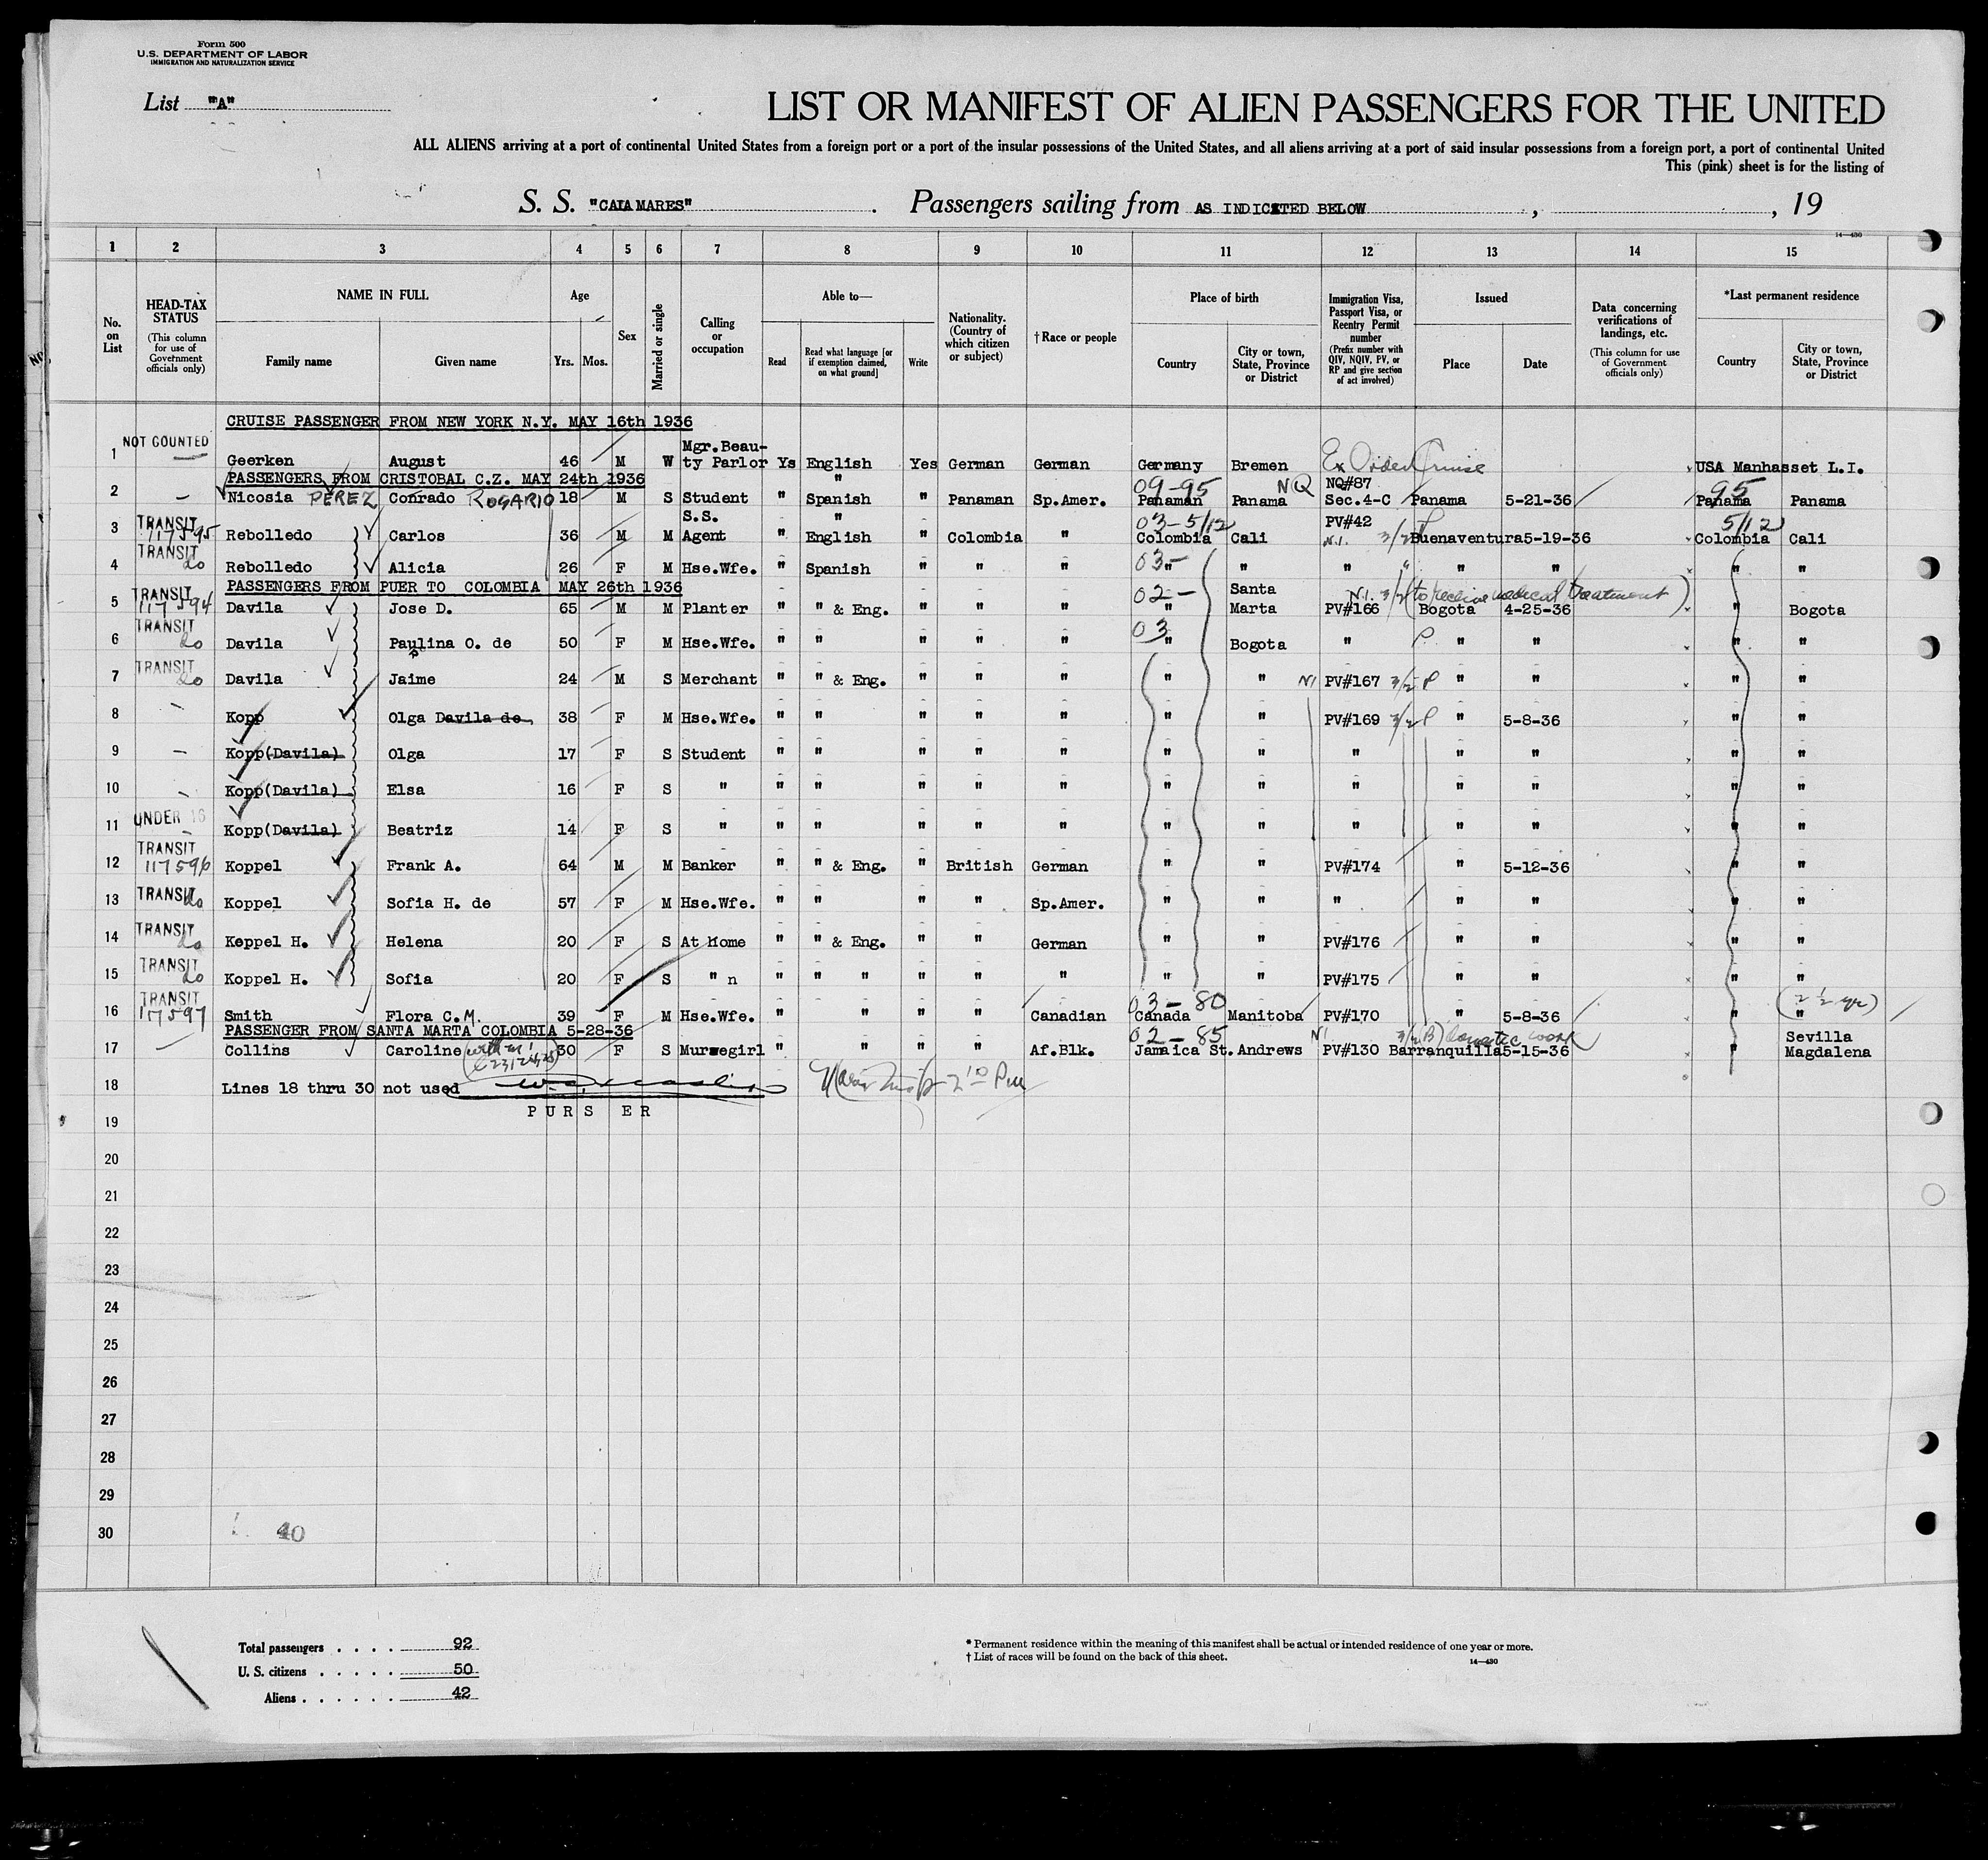 Form 500
U.S. DEPARTMENT OF LABOR
IMMIGRATION AND NATURALIZATION SERVICE
List "A"
LIST OR MANIFEST OF ALIEN PASSENGERS FOR THE UNITED
ALL ALIENS arriving at a port of continental United States from a foreign port or a port of the insular possessions of the United States, and all aliens arriving at a port of said insular possessions from a foreign port, a port of continental United
This (pink) sheet is for the listing of
S. S. "CALAMARES" . Passengers sailing from AS INDICATED BELOW , , 19
14—430
1 2 3 4 5 6 7 8 9 10 11 12 13 14 15
No. on List
HEAD-TAX STATUS (This column for use of Government officials only)
NAME IN FULL Family name Given name
Age Yrs. Mos.
Sex
Married or single
Calling or occupation
Able to— Read Read what language [or if exemption claimed, on what ground] Write
Nationality. (Country of which citizen or subject)
† Race or people
Place of birth Country City or town, State, Province or District
Immigration Visa, Passport Visa, or Reentry Permit number (Prefix number with QIV, NQIV, PV, or RP and give section of act involved)
Issued Place Date
Data concerning verifications of landings, etc. (This column for use of Government officials only)
*Last permanent residence Country City or town, State, Province or District
CRUISE PASSENGER FROM NEW YORK N.Y. MAY 16th 1936
1 NOT COUNTED Geerken August 46 M W Mgr.Beau-ty Parlor Ys English Yes German German Germany Bremen Ex Order Cruise USA Manhasset L.I.
PASSENGERS FROM CRISTOBAL C.Z. MAY 24th 1936
2 — Nicosia PEREZ Conrado ROSARIO 18 M S Student " " Spanish " Panaman Sp.Amer. 09-95 Panaman NQ Panama NQ#87 Sec.4-C Panama 5-21-36 95 Panama Panama
3 TRANSIT 117595 Rebolledo Carlos 36 M M S.S. Agent " " English " Colombia " 03-5/12 Colombia Cali PV#42 N.I. 3/2 P Buenaventura 5-19-36 5/12 Colombia Cali
4 TRANSIT do Rebolledo Alicia 26 F M Hse.Wfe. " Spanish " " " 03- " " " " " " "
PASSENGERS FROM PUERTO COLOMBIA MAY 26th 1936
5 TRANSIT 117594 Davila Jose D. 65 M M Planter " " & Eng. " " " 02- " Santa Marta N.I. 3/2 (to receive medical treatment) PV#166 Bogota 4-25-36 " Bogota
6 TRANSIT do Davila Paulina O. de 50 F M Hse.Wfe. " " " " " 03 " Bogota " P " " " "
7 TRANSIT do Davila Jaime 24 M S Merchant " " & Eng. " " " " " NI PV#167 3/2 P " " " "
8 - Kopp Olga Davila de 38 F M Hse.Wfe. " " " " " " " PV#169 3/2 P " 5-8-36 " "
9 — Kopp(Davila) Olga 17 F S Student " " " " " " " " " " " "
10 - Kopp(Davila) Elsa 16 F S " " " " " " " " " " " " "
11 UNDER 16 - Kopp(Davila) Beatriz 14 F S " " " " " " " " " " " " "
12 TRANSIT 117596 Koppel Frank A. 64 M M Banker " " & Eng. " British German " " PV#174 " 5-12-36 " "
13 TRANSIT do Koppel Sofia H. de 57 F M Hse.Wfe. " " " " Sp.Amer. " " " " " " "
14 TRANSIT do Koppel H. Helena 20 F S At Home " " & Eng. " " German " " PV#176 " " " "
15 TRANSIT do Koppel H. Sofia 20 F S " n " " " " " " " " PV#175 " " " "
16 TRANSIT 117597 Smith Flora C.M. 39 F M Hse.Wfe. " " " " Canadian 03-80 Canada Manitoba PV#170 " 5-8-36 " " (2 1/2 yr)
PASSENGER FROM SANTA MARTA COLOMBIA 5-28-36
17 — Collins Caroline 30 F S Mursegirl " " " " Af.Blk. 02-85 Jamaica St. Andrews NI PV#130 3/2 (B) domestic work Barranquilla 5-15-36 " Sevilla Magdalena
18 Lines 18 thru 30 not used
PURSER
19
20
21
22
23
24
25
26
27
28
29
30 40
Total passengers . . . . 92
U. S. citizens . . . . . 50
Aliens . . . . . . 42
* Permanent residence within the meaning of this manifest shall be actual or intended residence of one year or more.
† List of races will be found on the back of this sheet.
14—430